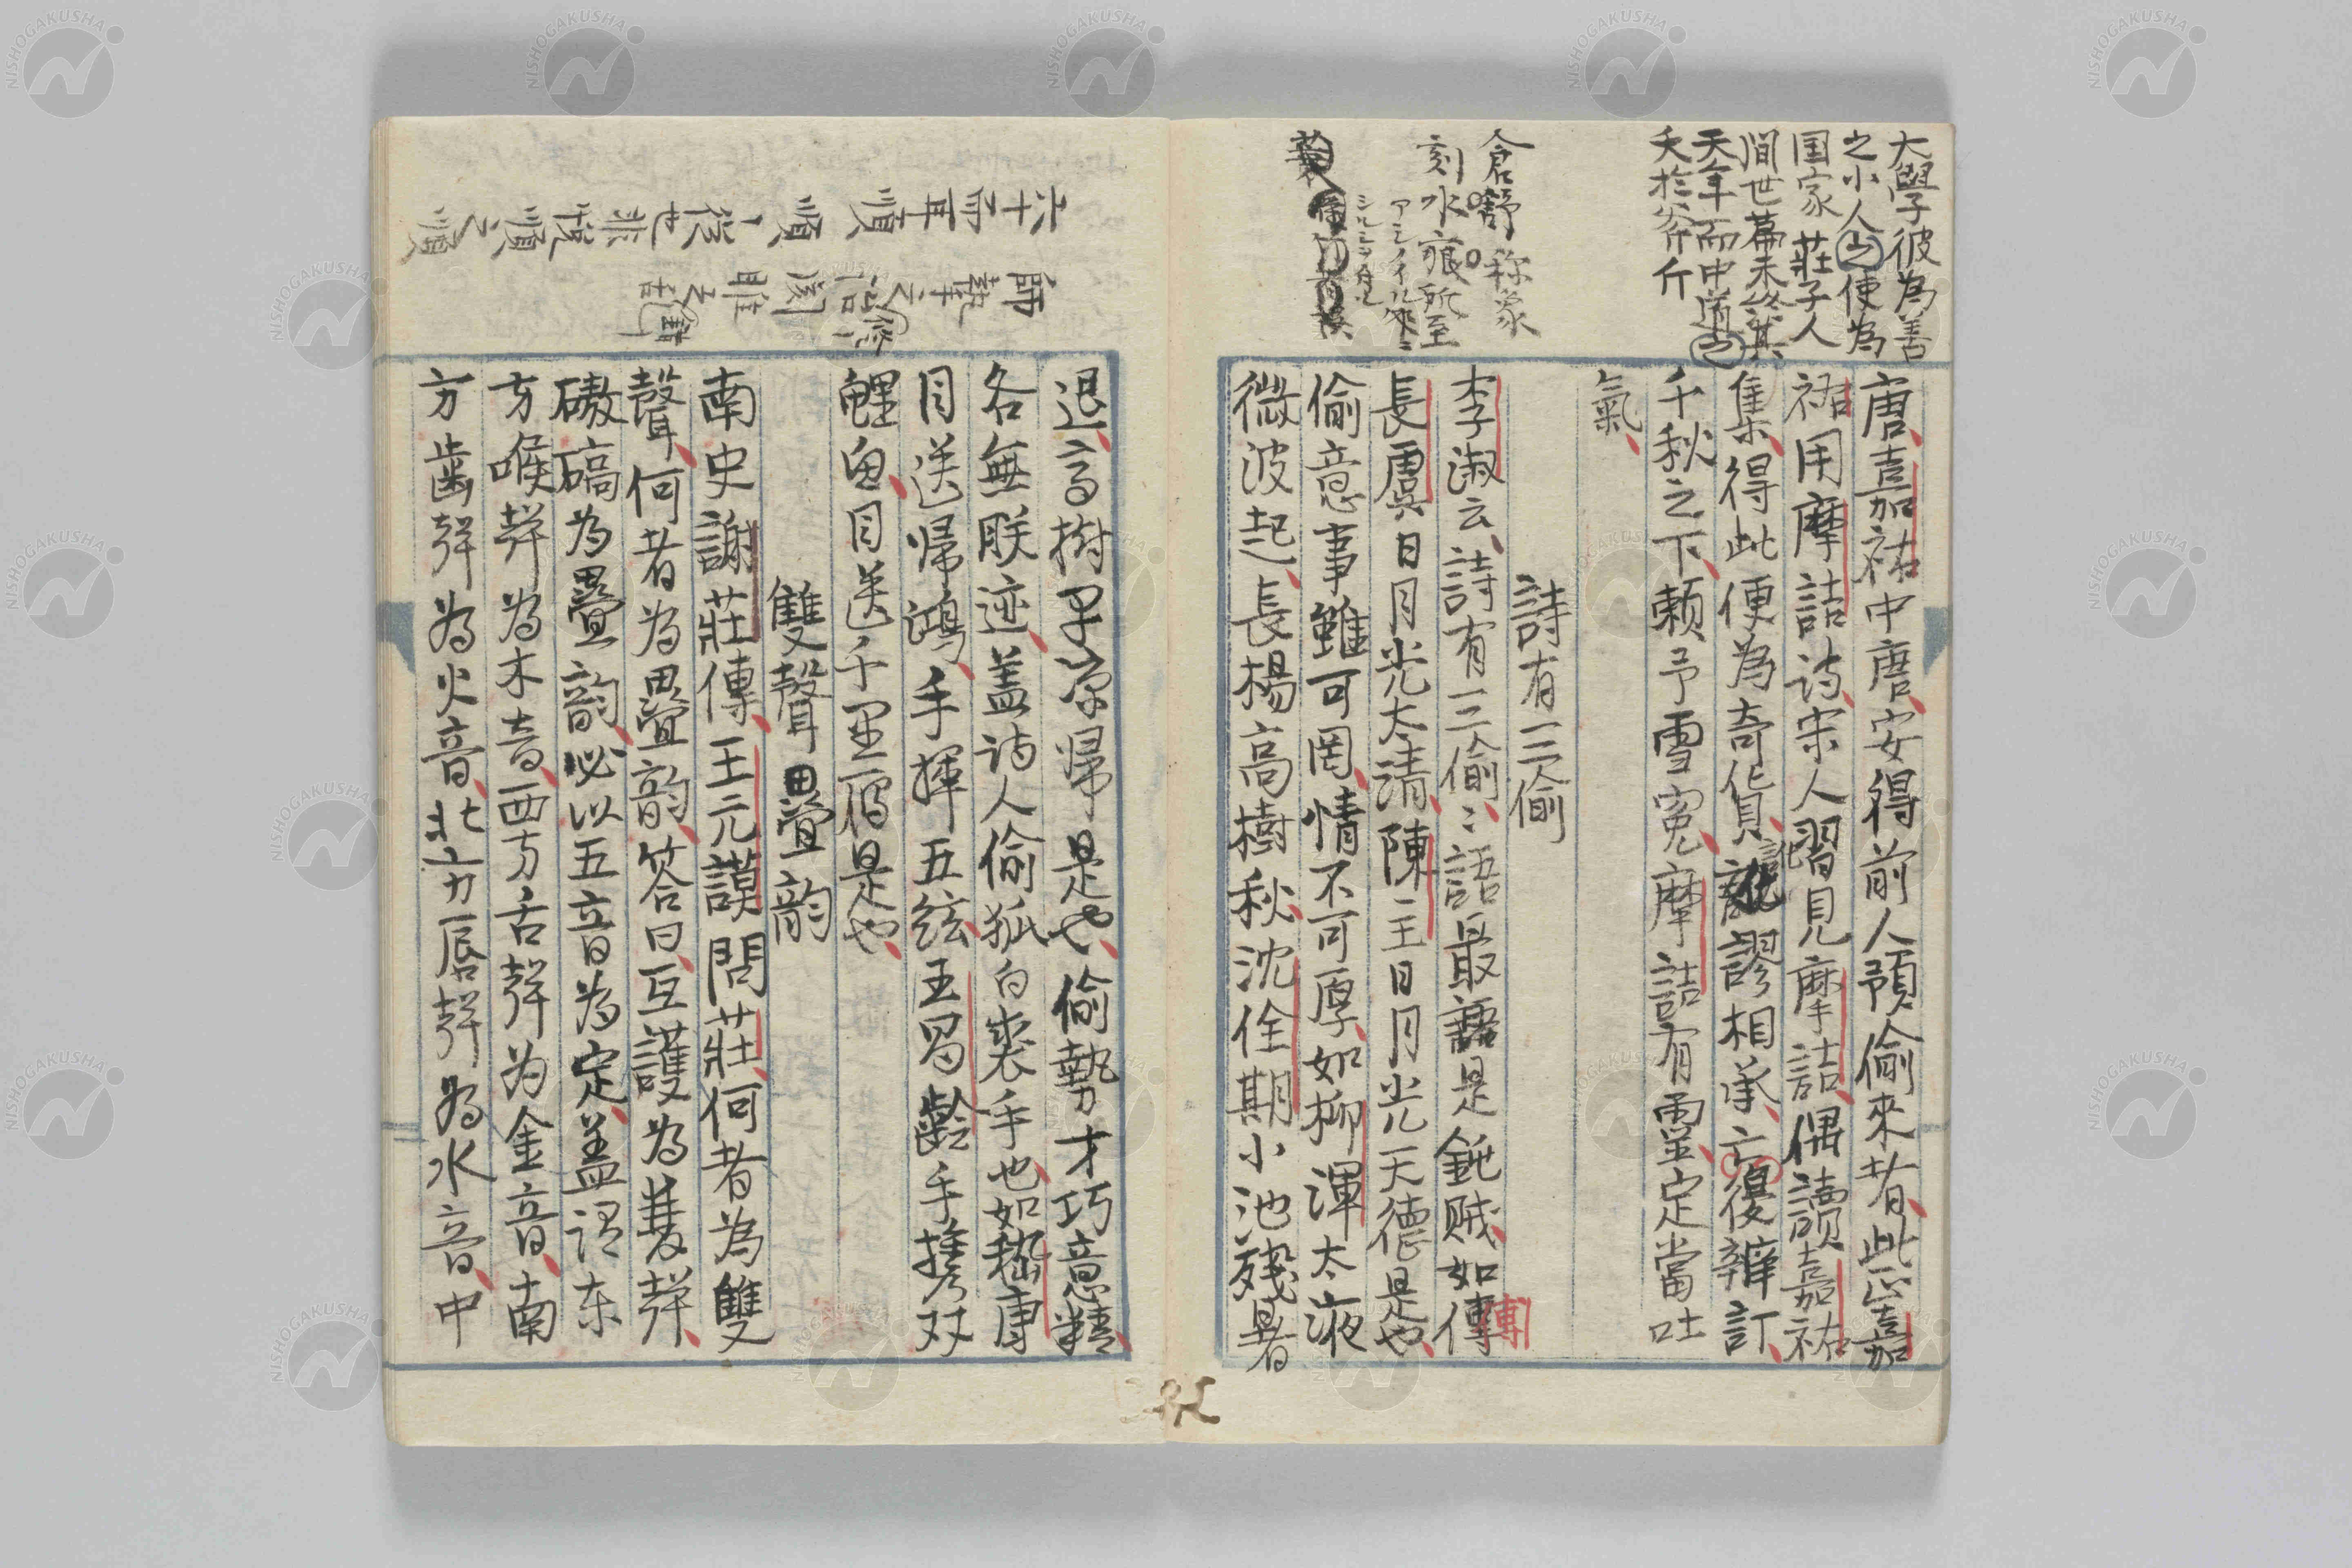 大學彼為善
之小人之使為
国家 荘子人
間世篇未終其
天年而中道之
夭於斧斤
倉舒 称象
刻水痕所至
唐、嘉祐中唐、安得前人預偷來者、此正嘉
祐用摩詰詩、宋人習見摩詰、偶讀嘉祐
集、得此便為奇貨、訛謬相承、亡復辯訂、
千秋之下、頼予雪寃、摩詰有靈、定當吐
氣、
詩有三偷
李淑云、詩有三偷、〻語最是鈍賊、如傳
長虞日月光太清、陳主日月光天德是也、
偷意事雖可罔、情不可厚、如柳渾太液
微波起、長楊高樹秋、沈佺期小池殘暑
六十而耳順
師摯之
退、高樹早涼帰是也、偷勢才巧意精、
各無朕迹、盖詩人偷狐白裘手也、如嵇康
目送帰鴻、手揮五絃、王昌齡手携双
鯉魚、目送千里雁是也、
雙聲疊韵
南史謝荘傳、王元謨問荘、何者為雙
聲、何者為疊韵、答曰、互護為雙聲、
磝碻為疊韵、必以五音為定、盖謂东
方喉聲為木音、西方舌聲为金音、南
方歯聲為火音、北方唇聲為水音、中
NISHOGAKUSHA